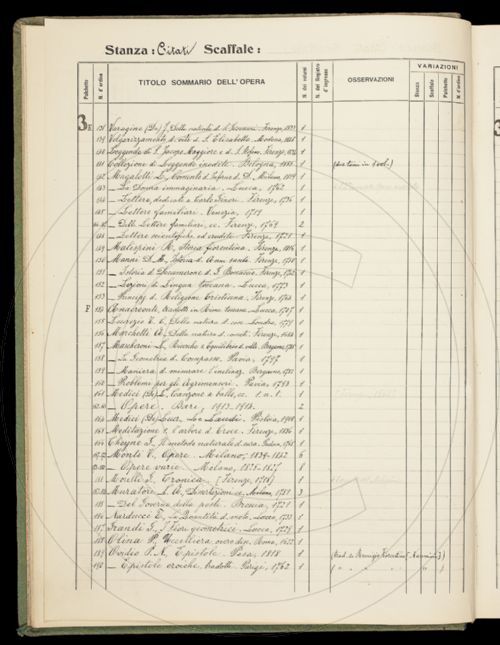 Stanza: Citati Scaffale:
VARIAZIONI
Palchetto
N. d'ordine
TITOLO SOMMARIO DELL'OPERA
N. dei volumi
N. del Registro d'ingresso
OSSERVAZIONI
Stanza
Scaffale
Palchetto
N. d'ordine
3 E
138 Varagine (Da) J. Firenze, 1833 1
139 Volgarizzamento di vita di S. Elisabetta. Modena, 1848 1
140 Leggenda di S. Jacopo Maggiore e di S. Firenze, 1
141 Collezione di Leggende inedite. Bologna, 1
142 Magalotti L. Comento Inferno di D. Milano, 1819 1
143 — La Donna immaginaria. Lucca, 1762 1
144 — Lettera dedicata a Carlo Firenze, 1736 1
145 — Lettere familiari. Venezia, 1719 1
— Delle Lettere familiari, ec. Firenze, 1769 2
— Lettere scientifiche ed erudite. Firenze, 1
149 Malispini R. Storia fiorentina. Firenze, 1816 1
150 Manni D. M. Istoria d. Anni santi. Firenze, 1750 1
151 — Istoria d. Decamerone d. G. Boccaccio. Firenze, 1742 1
152 — Lezioni di Lingua toscana. Lucca, 1773 1
153 — d. Religione Cristiana. Firenze, 1
F
154 Anacreonte, tradotto in Rime toscane. Lucca, 1707 1
155 Lucrezio T. C. Della natura d. cose. Londra, 1779 1
156 Marchetti A. Della natura d. comete. Firenze, 1684 1
157 Mascheroni L. Ricerche s. Equilibrio d. vòlte. Bergamo, 1785 1
158 — La Geometria d. Compasso. Pavia, 1797 1
159 — Maniera d. misurare l'inclinaz. Bergamo, 1782 1
160 — Problemi per gli Agrimensori. Pavia, 1793 1
161 Medici (De) L. Canzone a ballo, ec. s. n. t. 1
— Opere. Bari, 1913-1918. 2
164 Medici (De) Lucr. Le Laudi. Pistoia, 1900 1
165 Meditazione s. l'arbore d. Croce. Firenze, 1836 1
166 Cheyne G. Il metodo naturale d. cura. Padova, 1765 1
Monti V. Opere. Milano, 1839-1842 6
— Opere varie. Milano, 1825-1827 8
181 Morelli G. Cronica, [Firenze, 1718] 1
Muratori L. A. Dissertazioni ec. Milano, 1751 3
185 — Del Governo della peste. Brescia, 1721 1
186 Narducci T. La Quantità d. moto. Lucca, 1
187 Grandi G. I Fiori geometrici. Lucca, 1729 1
188 Olina P. Uccelliera, overo disc. Roma, 1622 1
189 Ovidio P. N. Epistole. Pesa, 1818 1 (trad. da Remigio Fiorentino [Nannini])
190 — Epistole eroiche, tradott. Parigi, 1762 1 ( " " " " )